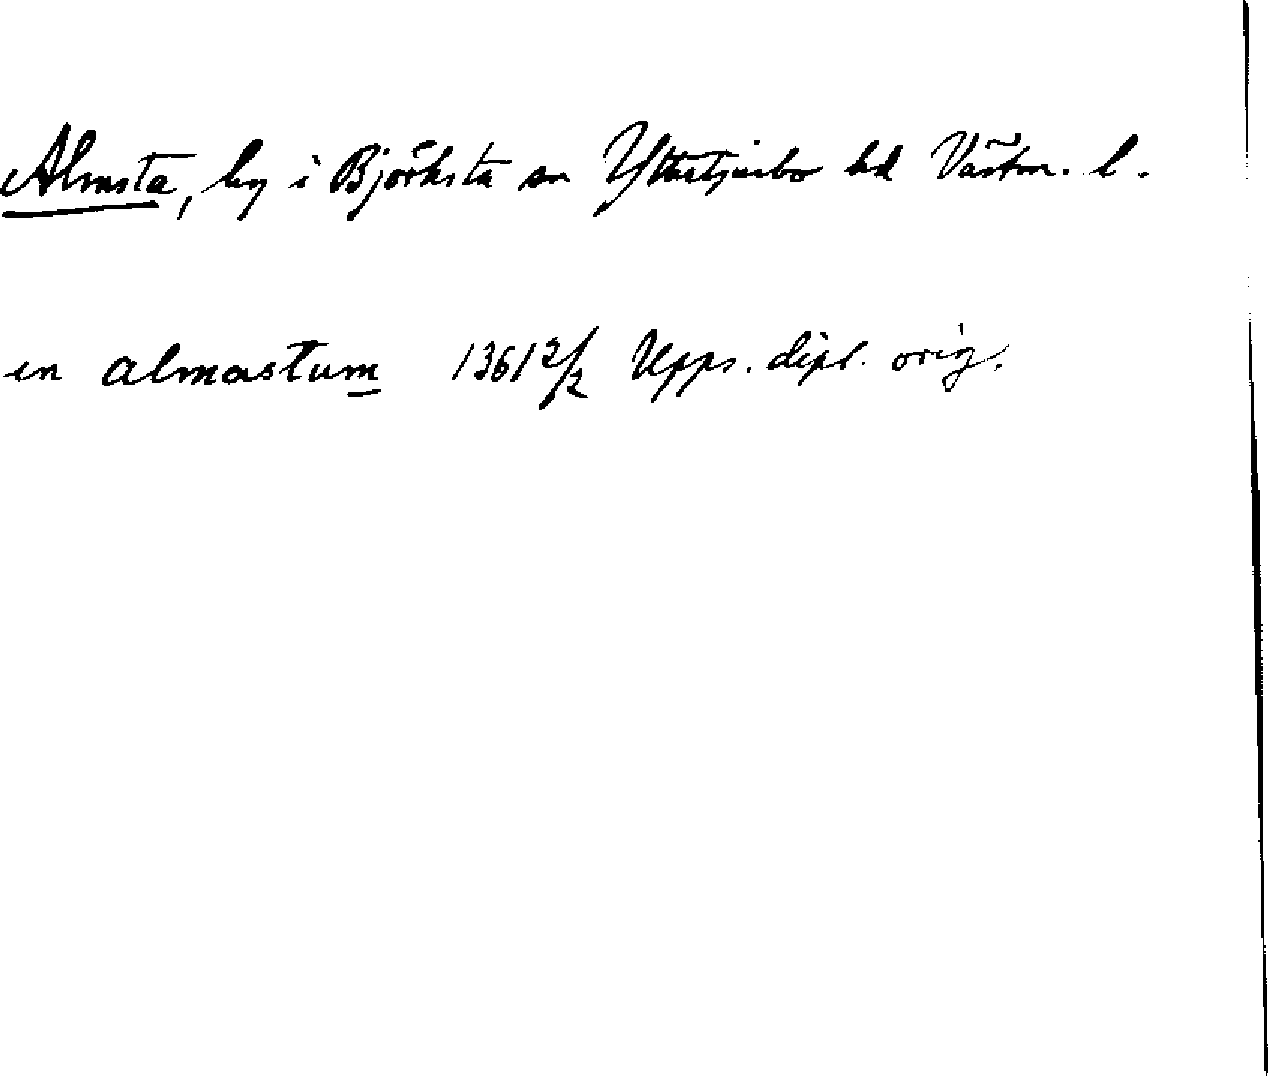 Almsta, by i Björksta sn Yttertjurbo hd Västm. l.
in almastum 1361 2/2 Upps. dipl. orig.